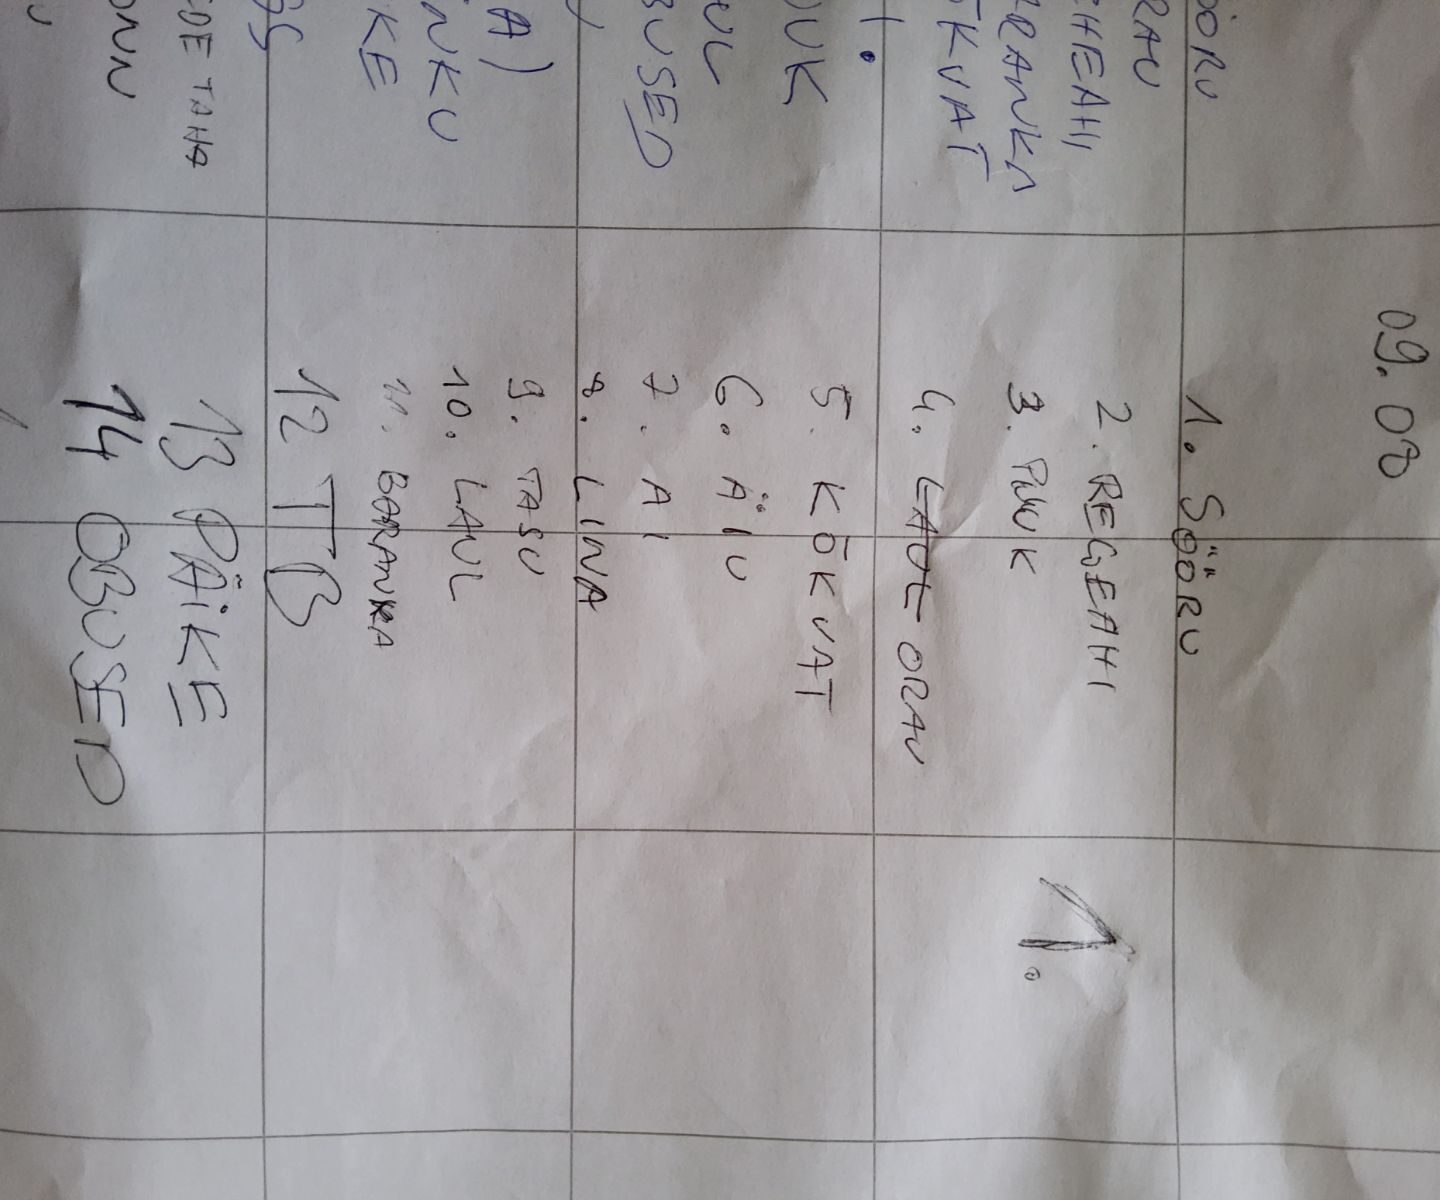 09.08
1. SÖÖRU
2. REGEAHI
3. PUUK
4. LAUL ORAV
5. KÕKVAT
6. ÄIU
7. AI
8. LINA
9. TASU
10. LAUL
11. BARANKA
12 TB
13 PÄIKE
14 OBUSED
1.
ÖÖRU
RAV
EHEAHI
RANKA
ÕKVAT
1.
UUK
UL
BUSED
A)
NKU
KE